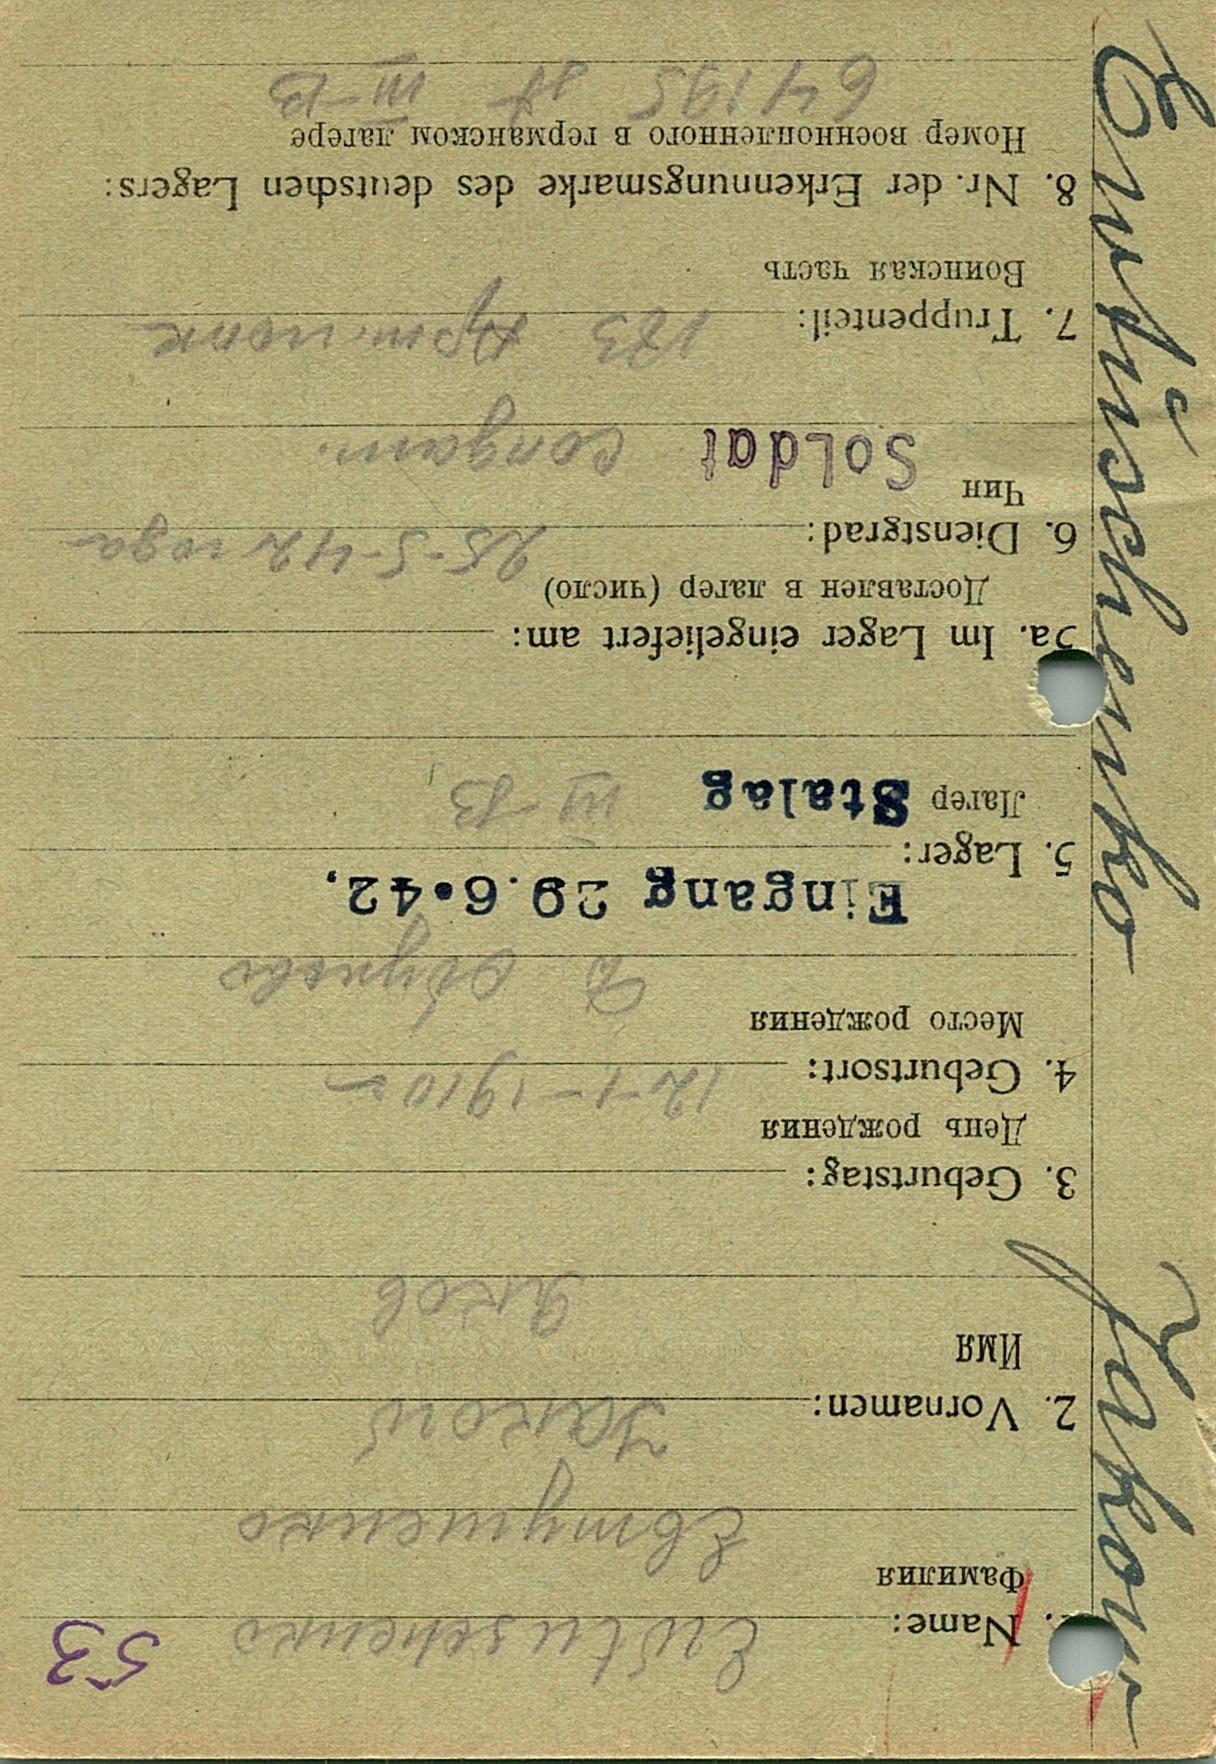 53
1. Name: Ewtuschenko
Фамилия
Евтушенко
2. Vornamen: Jakow
Имя
Яков
3. Geburtstag:
День рождения
12-1-1910 г
4. Geburtsort:
Место рождения
Д
Eingang 29.6.42.
5. Lager:
Лагер Stalag III-B
5a. Im Lager eingeliefert am:
Доставлен в лагер (число)
25-5-42 года
6. Dienstgrad:
Чин Soldat солдат.
7. Truppenteil: 183 Арт. полк
Воинская часть
8. Nr. der Erkennungsmarke des deutschen Lagers:
Номер военнопленного в германском лагере
64195 III-B
Jakow Ewtüschenko